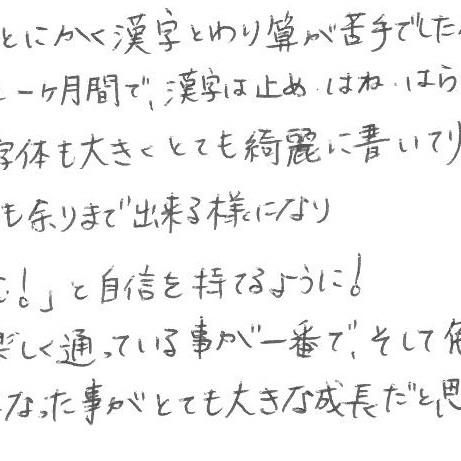 とにかく漢字とわり算が苦手でした
一ヶ月間で、漢字は止め、はね、はら
字体も大きくとても綺麗に書いて
も余りまで出来る様になり
！」と自信を持てるように！
楽しく通っている事が一番で、そして
なった事がとても大きな成長だと思